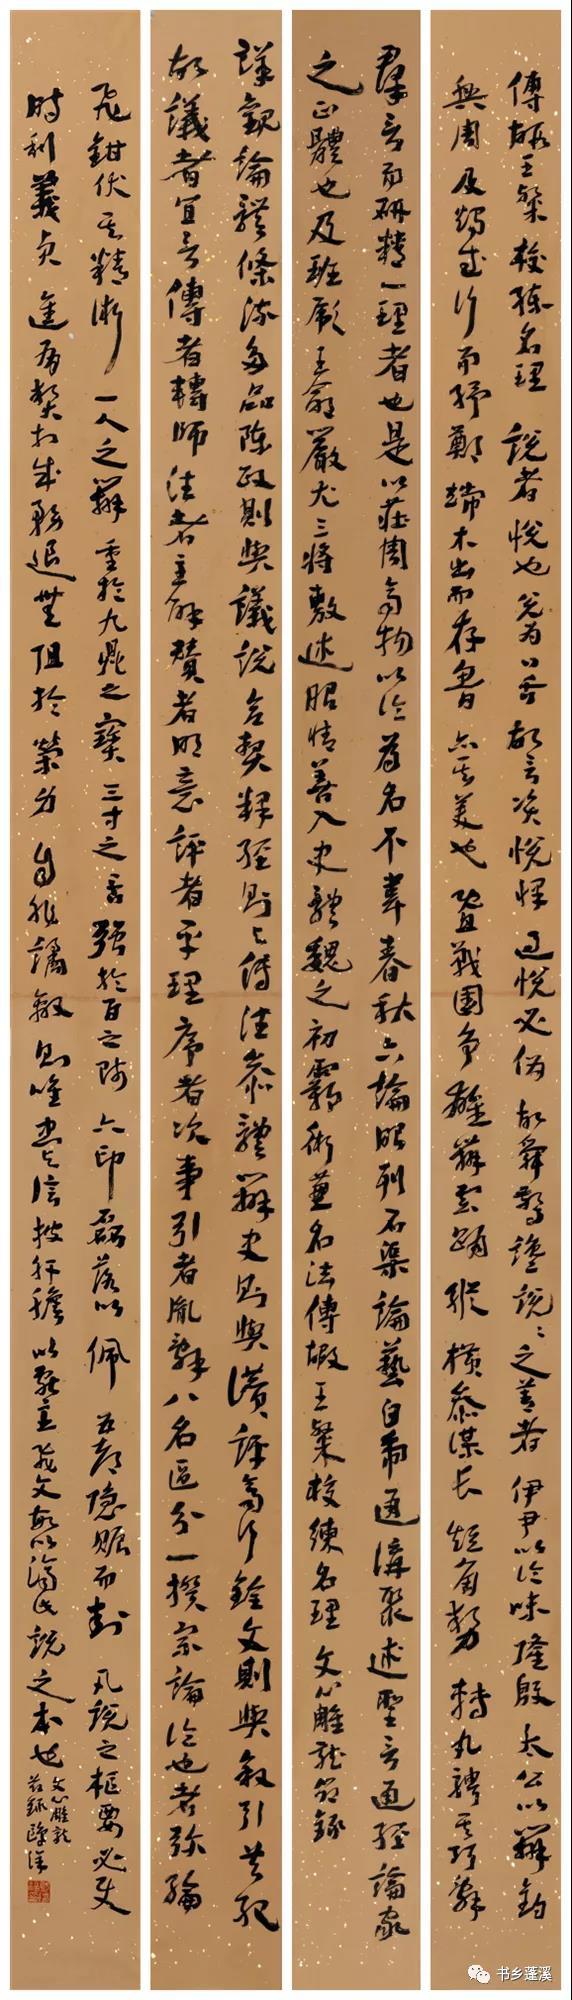 傅嘏王粲校練名理說者悅也兌為口舌故言咨悅懌過悅必偽故舜驚讒說說之善者伊尹以論味隆殷太公以辨釣
興周及燭武行而紓鄭端木出而存魯亦其美也暨戰國爭雄辨雲踊縱橫參謀長短角勢轉丸騁其巧辭
群言而研精一理者也是以莊周齊物以論為名不韋春秋六論昭列石渠論藝白虎通講聚述聖言通經論家
之正體也及班彪王命嚴尤三將敷述昭情善入史體魏之初霸術兼名法傅嘏王粲校練名理文心雕龍節錄
詳觀論體條流多品陳政則與議說合契釋經則與傳注參體辨史則與讚評齊行銓文則與敘引共紀
故議者宜言傳者轉師注者主解贊者明意評者平理序者次事引者胤辭八名區分一揆宗論論也者彌綸
飛鉗伏其精術一人之辨重於九鼎之寶三寸之舌強於百之師六印磊落以佩五都隱賑而封凡說之樞要必使
時利義貞進有契於成務退無阻於榮身自非譎敵則唯忠與信披肝膽以獻主飛文敏以濟辭說之本也
文心雕龍
書乡蓬溪